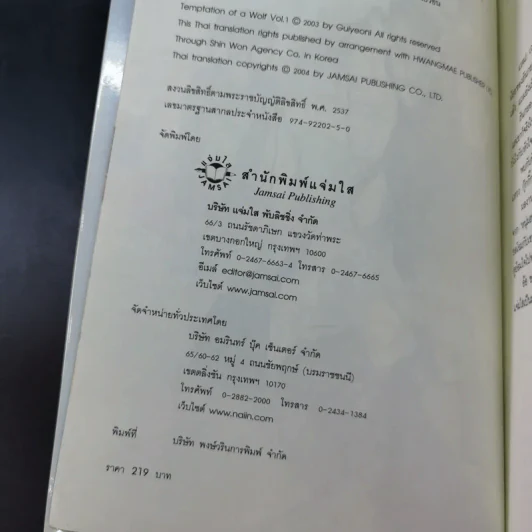 Temptation of a Wolf Vol.1 © 2003 by Guiyeoni All rights reserved
This Thai translation rights published by arrangement with HWANGMAE PUBLISHER
Through Shin Won Agency Co. in Korea
Thai translation copyrights © 2004 by JAMSAI PUBLISHING CO., LTD.
สงวนลิขสิทธิ์ตามพระราชบัญญัติลิขสิทธิ์ พ.ศ. 2537
เลขมาตรฐานสากลประจำหนังสือ 974-92202-5-0
จัดพิมพ์โดย
แจ่มใส
JAMSAI
สำนักพิมพ์แจ่มใส
Jamsai Publishing
บริษัท แจ่มใส พับลิชชิ่ง จำกัด
66/3 ถนนรัชดาภิเษก แขวงวัดท่าพระ
เขตบางกอกใหญ่ กรุงเทพฯ 10600
โทรศัพท์ 0-2467-6663-4 โทรสาร 0-2467-6665
อีเมล์ editor@jamsai.com
เว็บไซต์ www.jamsai.com
จัดจำหน่ายทั่วประเทศโดย
บริษัท อมรินทร์ บุ๊ค เซ็นเตอร์ จำกัด
65/60-62 หมู่ 4 ถนนชัยพฤกษ์ (บรมราชชนนี)
เขตตลิ่งชัน กรุงเทพฯ 10170
โทรศัพท์ 0-2882-2000 โทรสาร 0-2434-1384
เว็บไซต์ www.naiin.com
พิมพ์ที่ บริษัท พงษ์วรินการพิมพ์ จำกัด
ราคา 219 บาท